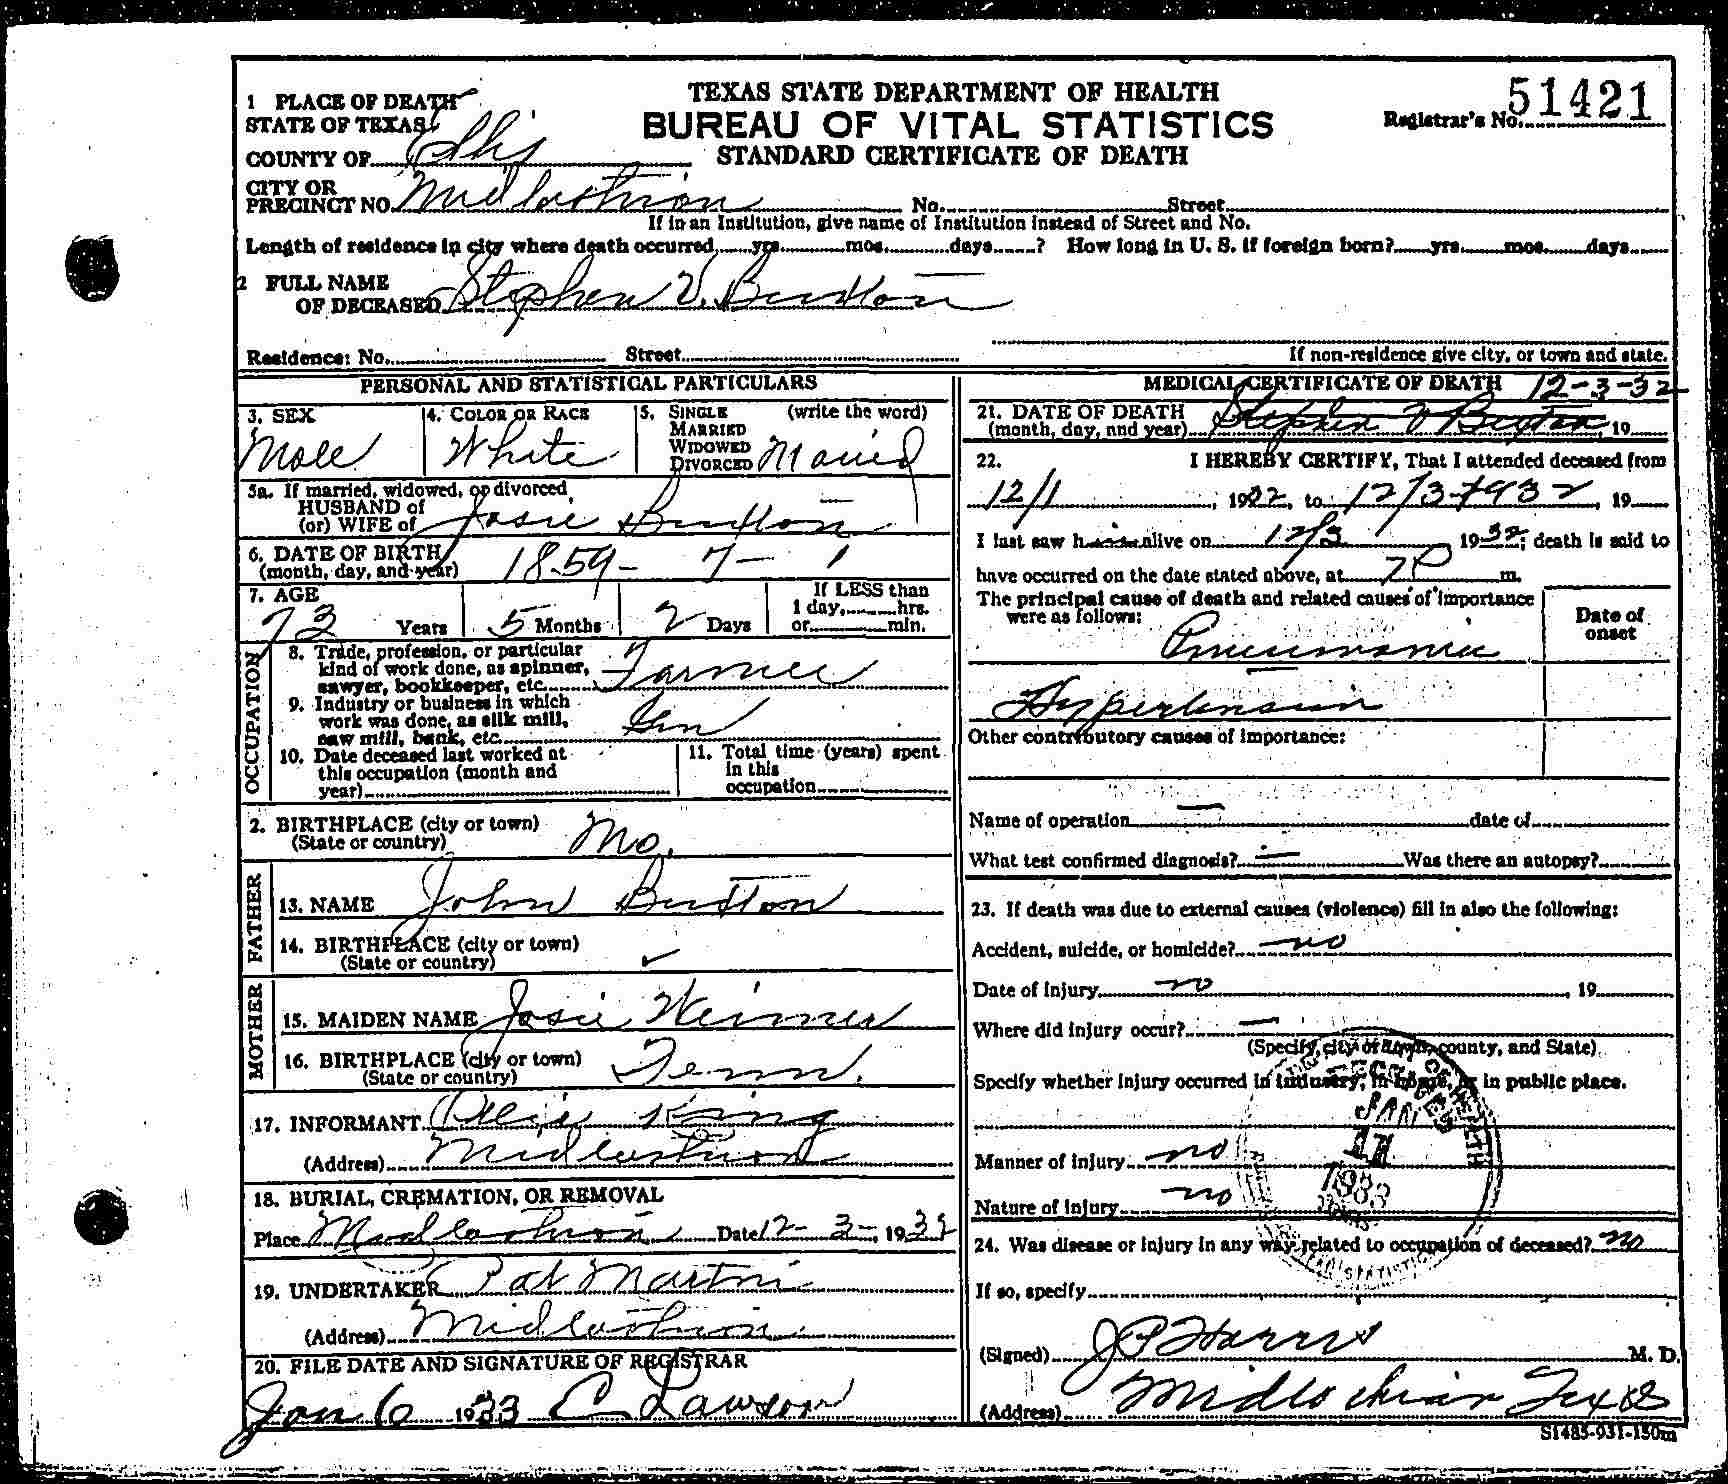 TEXAS STATE DEPARTMENT OF HEALTH
BUREAU OF VITAL STATISTICS
STANDARD CERTIFICATE OF DEATH
Registrar's No. 51421
1 PLACE OF DEATH
STATE OF TEXAS
COUNTY OF Ellis
CITY OR
PRECINCT NO. Midlothian No. Street
If in an Institution, give name of Institution instead of Street and No.
Length of residence in city where death occurred yrs. mos. days ? How long in U. S. if foreign born? yrs. mos. days
2 FULL NAME
OF DECEASED Stephen V. Buxton
Residence: No. Street
If non-residence give city, or town and state.
PERSONAL AND STATISTICAL PARTICULARS
3. SEX
Male
4. COLOR OR RACE
White
5. SINGLE (write the word)
MARRIED
WIDOWED
DIVORCED Maried
5a. If married, widowed, or divorced,
HUSBAND of
(or) WIFE of Josie Buxton
6. DATE OF BIRTH
(month, day, and year) 1859 - 7 - 1
7. AGE
73 Years 5 Months 2 Days
If LESS than
1 day, hrs.
or min.
OCCUPATION
8. Trade, profession, or particular
kind of work done, as spinner,
sawyer, bookkeeper, etc. Farmer
9. Industry or business in which
work was done, as silk mill,
saw mill, bank, etc. Gen
10. Date deceased last worked at
this occupation (month and
year)
11. Total time (years) spent
in this
occupation
2. BIRTHPLACE (city or town)
(State or country) Mo.
FATHER
13. NAME John Buxton
14. BIRTHPLACE (city or town)
(State or country) ✓
MOTHER
15. MAIDEN NAME Josie Weimer
16. BIRTHPLACE (city or town)
(State or country) Tenn.
17. INFORMANT King
(Address) Midlothian
18. BURIAL, CREMATION, OR REMOVAL
Place Midlothian Date 12-3-, 1932
19. UNDERTAKER Pat Martin
(Address) Midlothian
20. FILE DATE AND SIGNATURE OF REGISTRAR
Jan 6 1933 C Lawson
MEDICAL CERTIFICATE OF DEATH 12-3-32
21. DATE OF DEATH
(month, day, and year) Stephen V Buxton, 19
22. I HEREBY CERTIFY, That I attended deceased from
12/1, 1932, to 12/3-1932, 19
I last saw him alive on 12/3 1932, death is said to
have occurred on the date stated above, at 7P m.
The principal cause of death and related causes of importance
were as follows:
Date of
onset
Pneumonia
Hypertension
Other contributory causes of importance:
Name of operation — date of
What test confirmed diagnosis? — Was there an autopsy?
23. If death was due to external causes (violence) fill in also the following:
Accident, suicide, or homicide? no
Date of injury no, 19
Where did injury occur? —
(Specify, city or town, county, and State)
Specify whether injury occurred in industry, in home, or in public place.
Manner of injury no
Nature of injury no
JAN
11
1933
24. Was disease or injury in any way related to occupation of deceased? no
If so, specify
(Signed) J P Harris M. D.
(Address) Midlothian Texas
S1485-931-150m